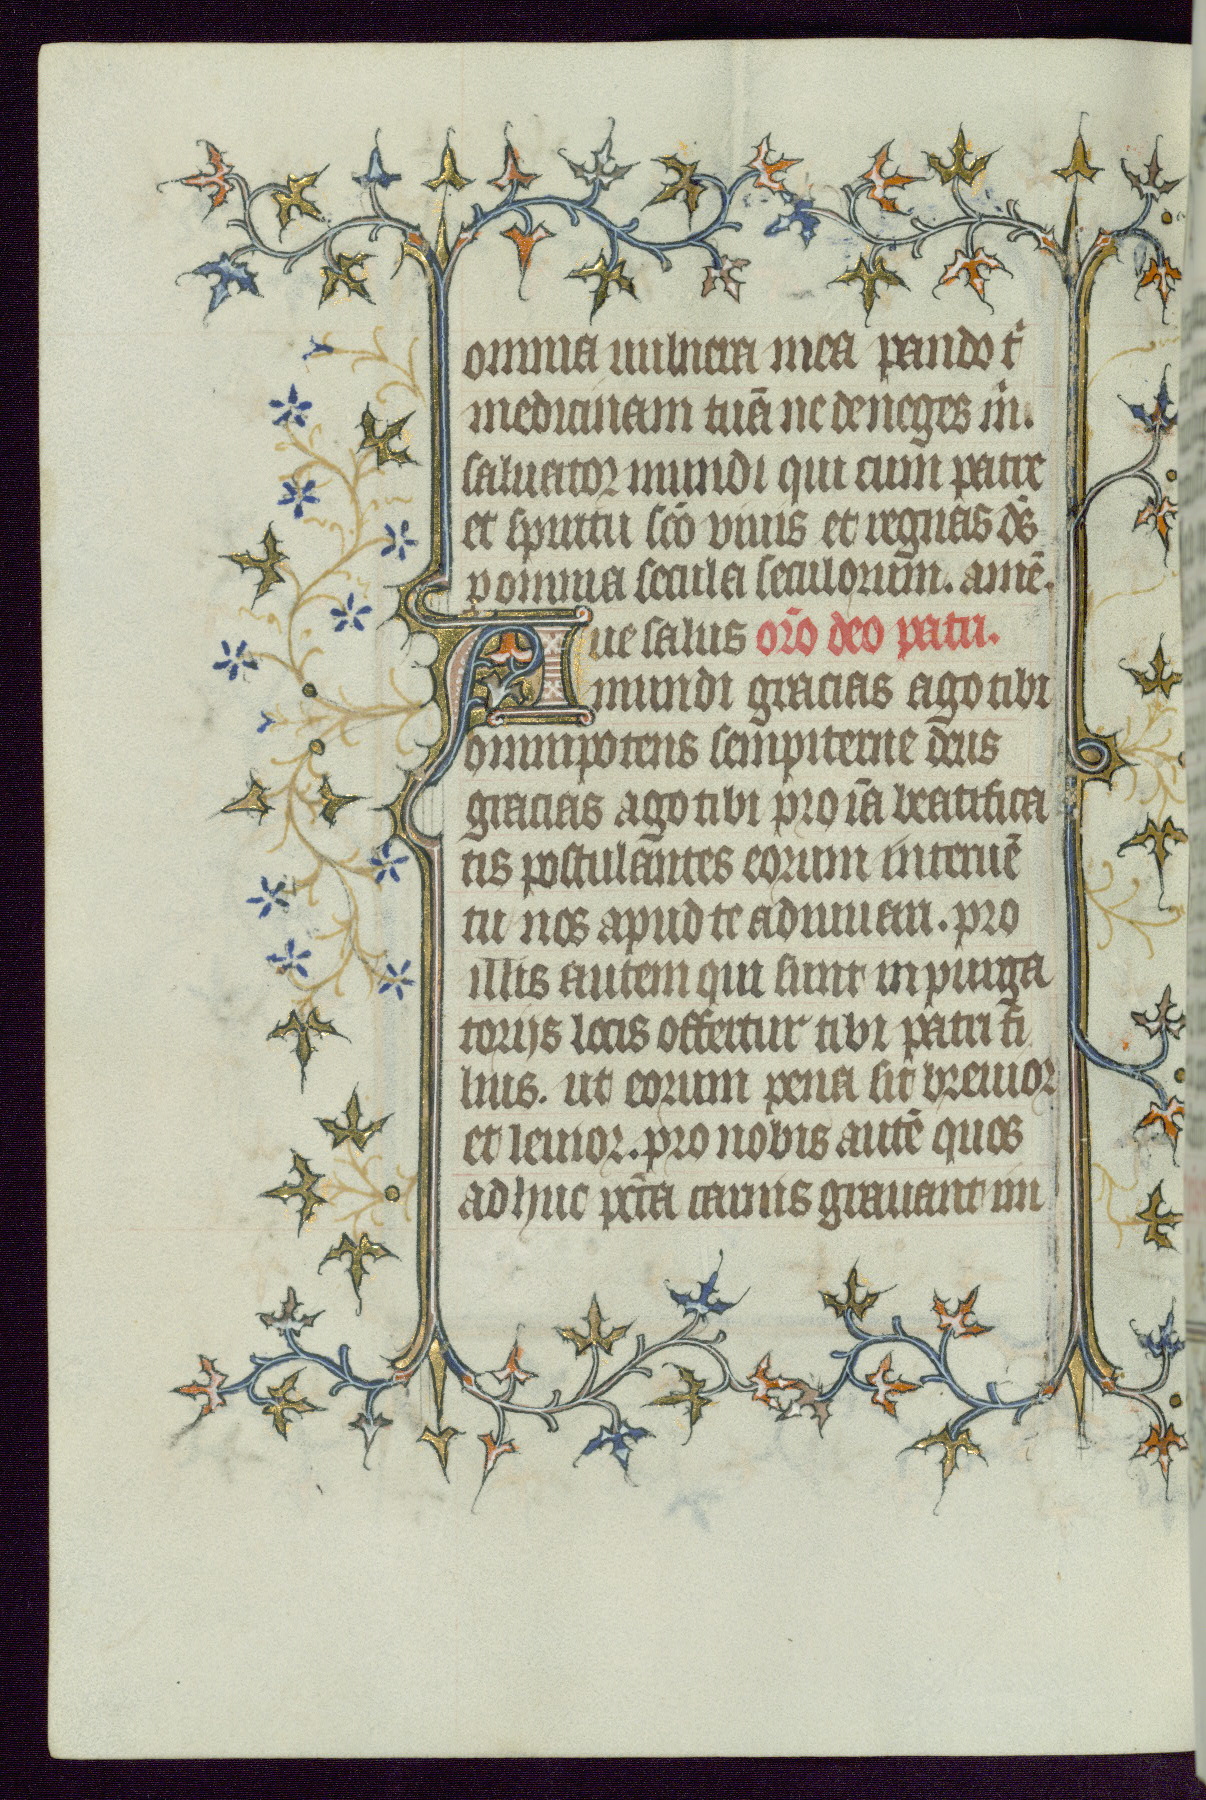 omnia uulnera mea pando t̾
medicinam tuā ne deneges m̾.
saluator mundi qui cum patre
et spiritu sc̄o viuis et regnas ds̄
p omnia secula seculorum. amē.
Aue salus or̄o deo patri.
mundi gracias ago tibi
omnipotens sempiterne deus
gracias ago tibi pro iā beatifica
tis postulantes eorum interuē
tu nos apud te adiuuari. pro
illis autem qui sunt in purga
torijs locis offertur tibi patri fi
lius. ut eorum pena sit breuior
et leuior. pro nobis autē quos
adhuc pc̄ta carnis grauant im